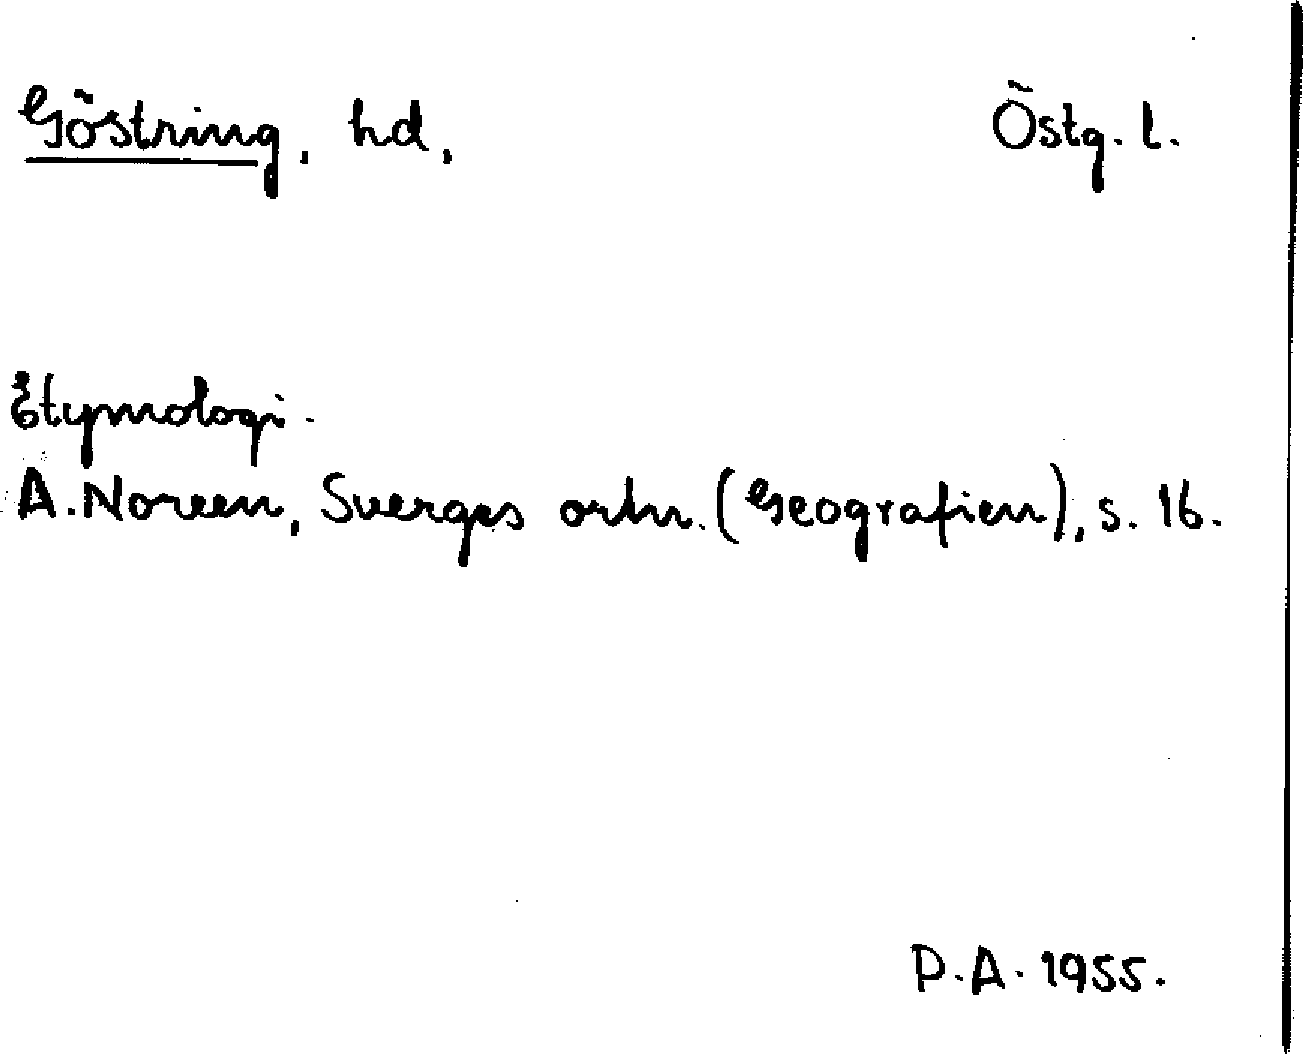 Göstring, hd, Östg. l.
Etymologi.
A. Noreen, Sverges ortn. (Geografien), s. 16.
P.A. 1955.